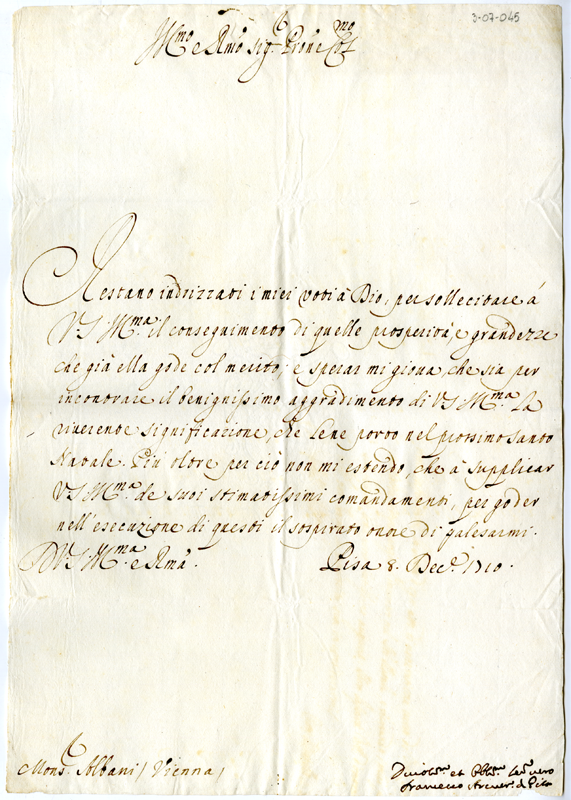 3-07-045
Ill.mo e R.mo Sig.r Pron e Col.mo
Restano indrizzati i miei voti à Dio, per sollecitare á
V.S. Ill.ma il conseguimento di quelle prosperità, e grandezze
che già ella gode col merito; e sperar mi giova, che sia per
incontrare il benignissimo aggradimento di V.S. Ill.ma la
riverente significazione, che le ne porto nel prossimo santo
Natale. Più oltre per ciò non mi estendo, che à supplicar
V.S. Ill.ma de suoi stimatissimi comandamenti, per goder
nell'esecuzione di questi il sospirato onore di palesarmi.
D V.S. Ill.ma e R.ma. Pisa 8. Dec.e 1710.
Mons.r Albani / Vienna /
Divot.mo et Obblig.mo Ser.re vero
Francesco Arciv.o di Pisa